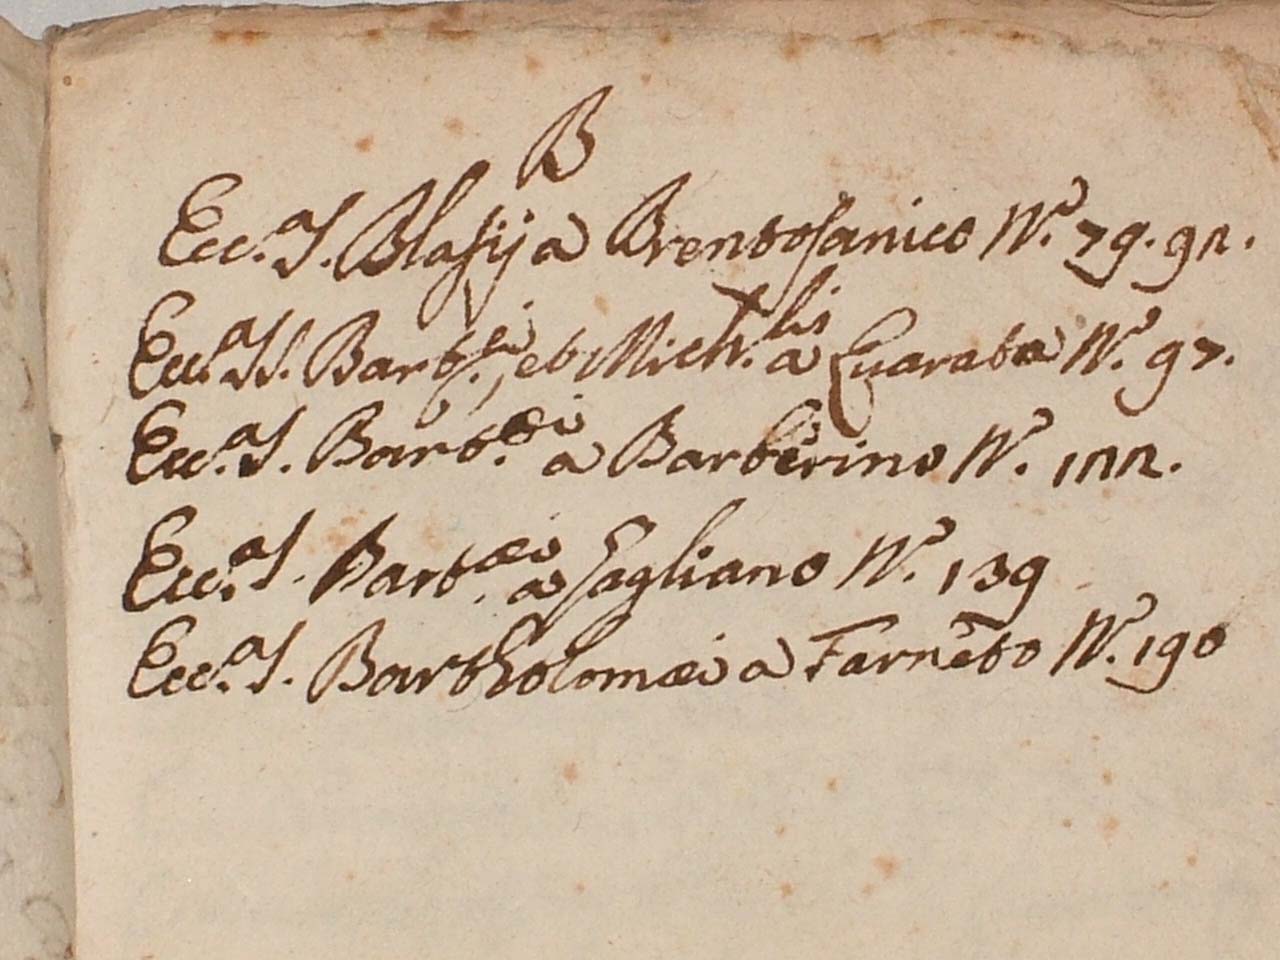 B
Ecc.a S. Blasij a Brentosanico N.o 79. 92.
Ecc.a SS. Bart.ei, et Mich.lis a Quarata N.o 97.
Ecc.a S. Bart.æi a Barberino N.o 122.
Ecc.a S. Bart.æi a Gagliano N.o 139
Ecc.a S. Bartholomæi a Farneto N.o 190